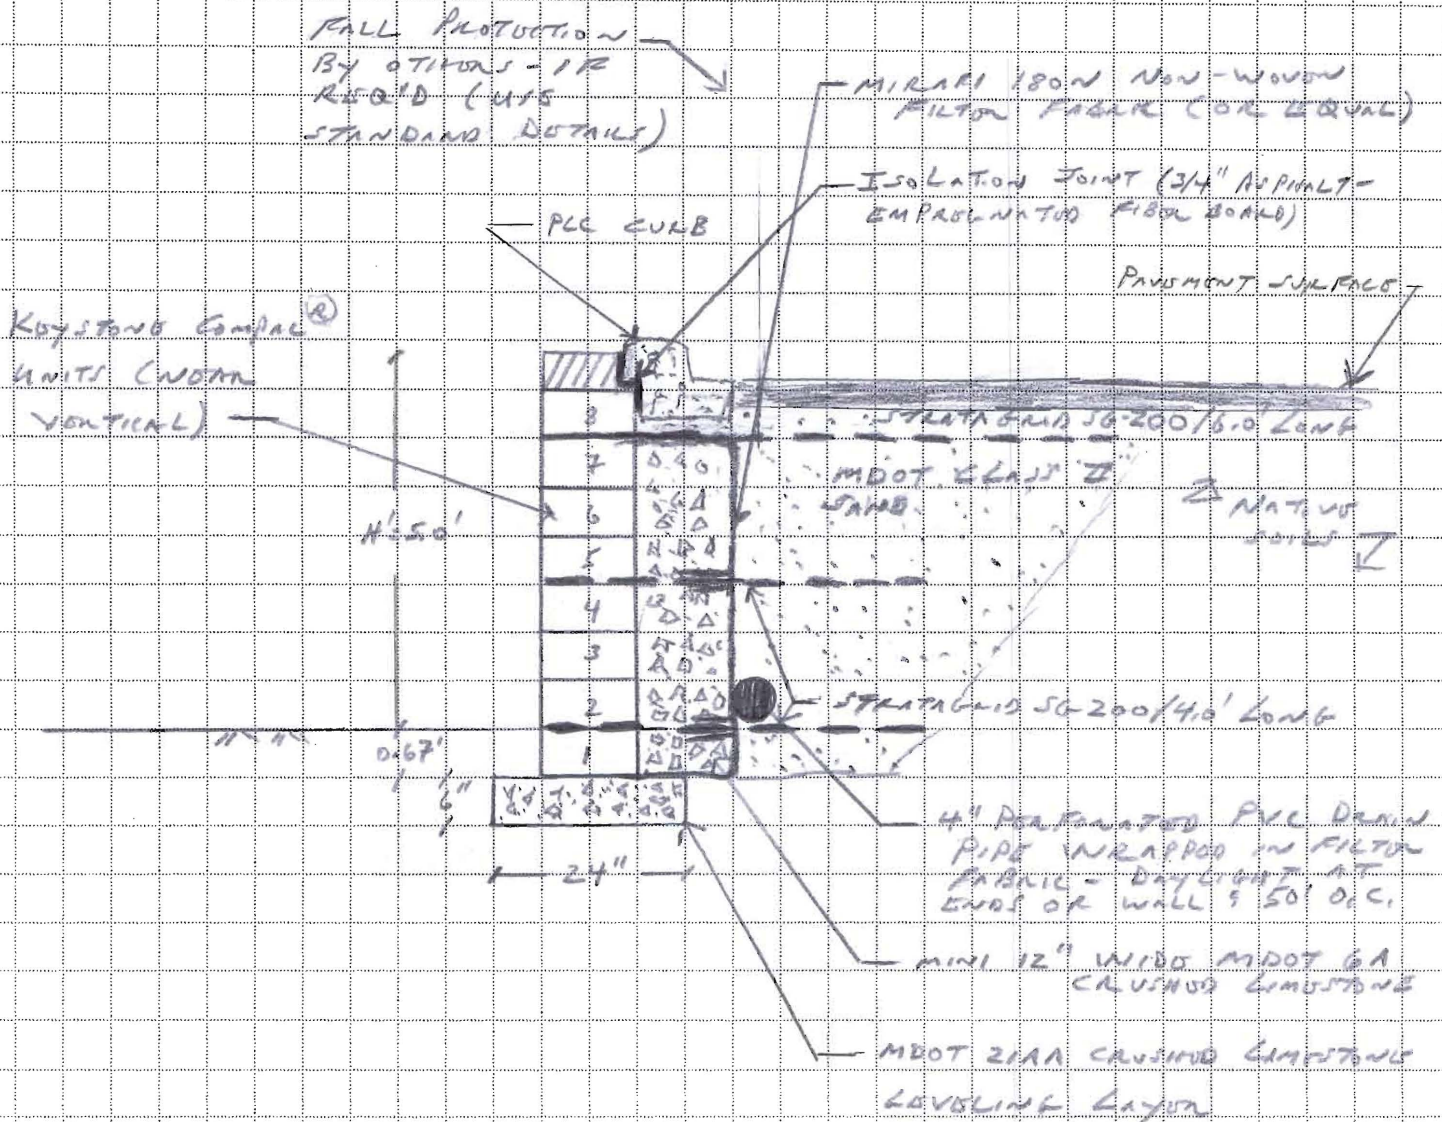 FALL PROTECTION
BY OTHERS - IF
REQ'D (U/S
STANDARD DETAILS)
MIRAFI 180N NON-WOVEN
FILTER FABRIC (OR EQUAL)
ISOLATION JOINT (3/4" ASPHALT-
EMPREGNATED FIBER BOARD)
PCC CURB
PAVEMENT SURFACE
KEYSTONE COMPAC ®
UNITS (NEAR
VERTICAL)
8
STRATAGRID SG-200/6.0' LONG
7
MDOT CLASS II
SAND
6
NATIVE
SOILS
H'=5.0'
5
4
3
2
STRATAGRID SG 200/4.0' LONG
0.67'
1
6"
24"
4" PERFORATED PVC DRAIN
PIPE WRAPPED IN FILTER
FABRIC - DAYLIGHT AT
ENDS OF WALL & 50' O.C.
MINI 12" WIDE MDOT 6A
CRUSHED LIMESTONE
MDOT 21AA CRUSHED LIMESTONE
LEVELING LAYER